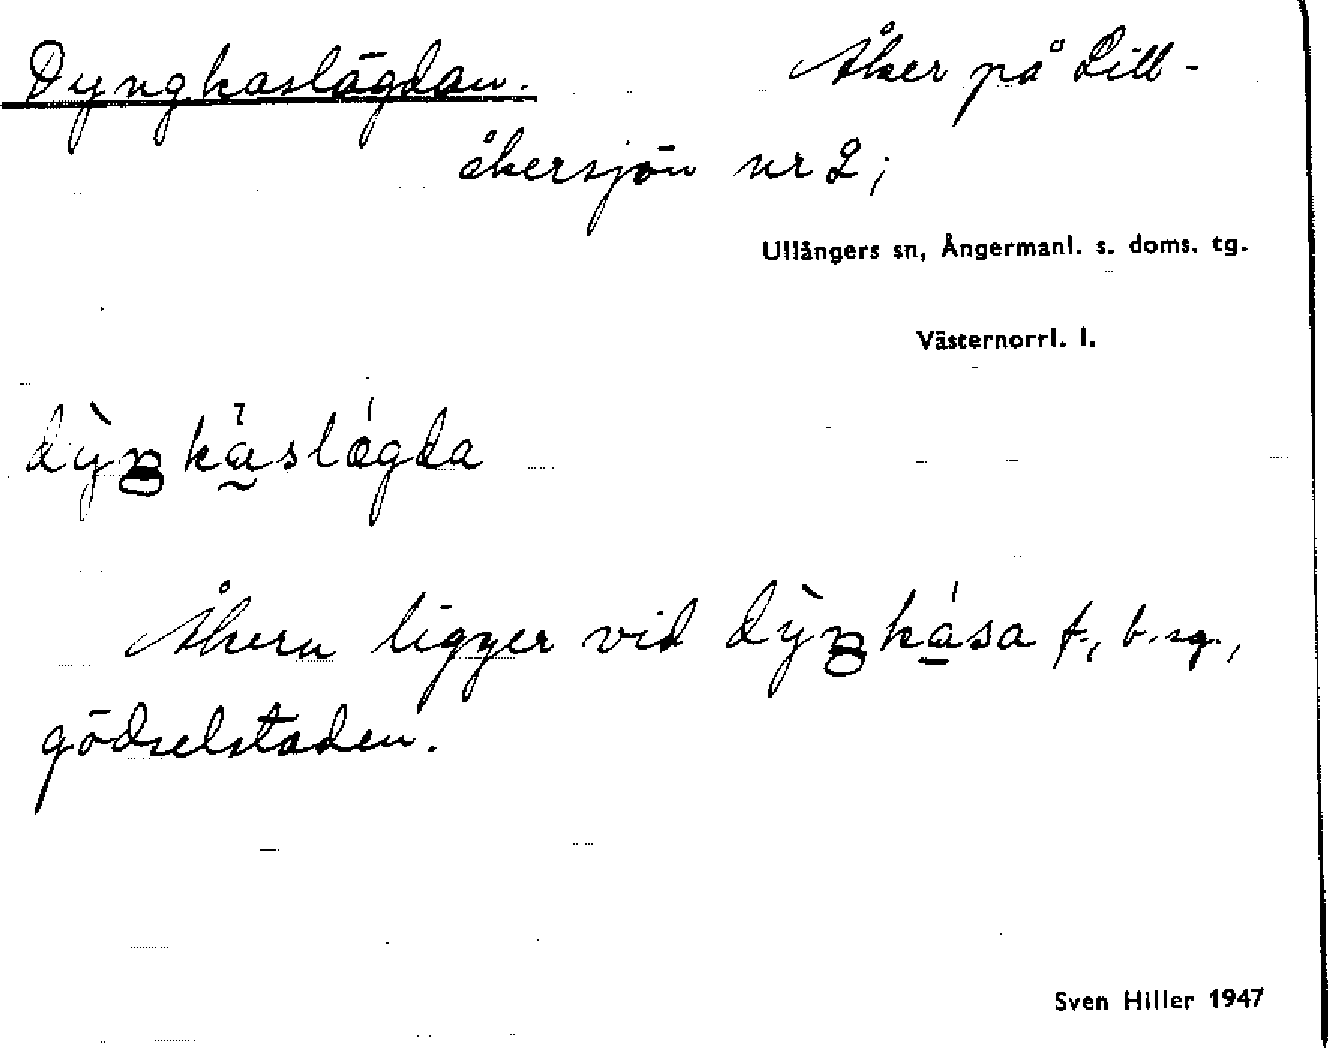 Dyngkaslägdan. Åker på Lill-
åkersjön nr 2;
Ullångers sn, Ångermanl. s. doms. tg.
Västernorrl. l.
dỳŋkaslǽgda
Åkern ligger vid dỳŋkása f., b. sg.,
gödselstaden.
Sven Hiller 1947